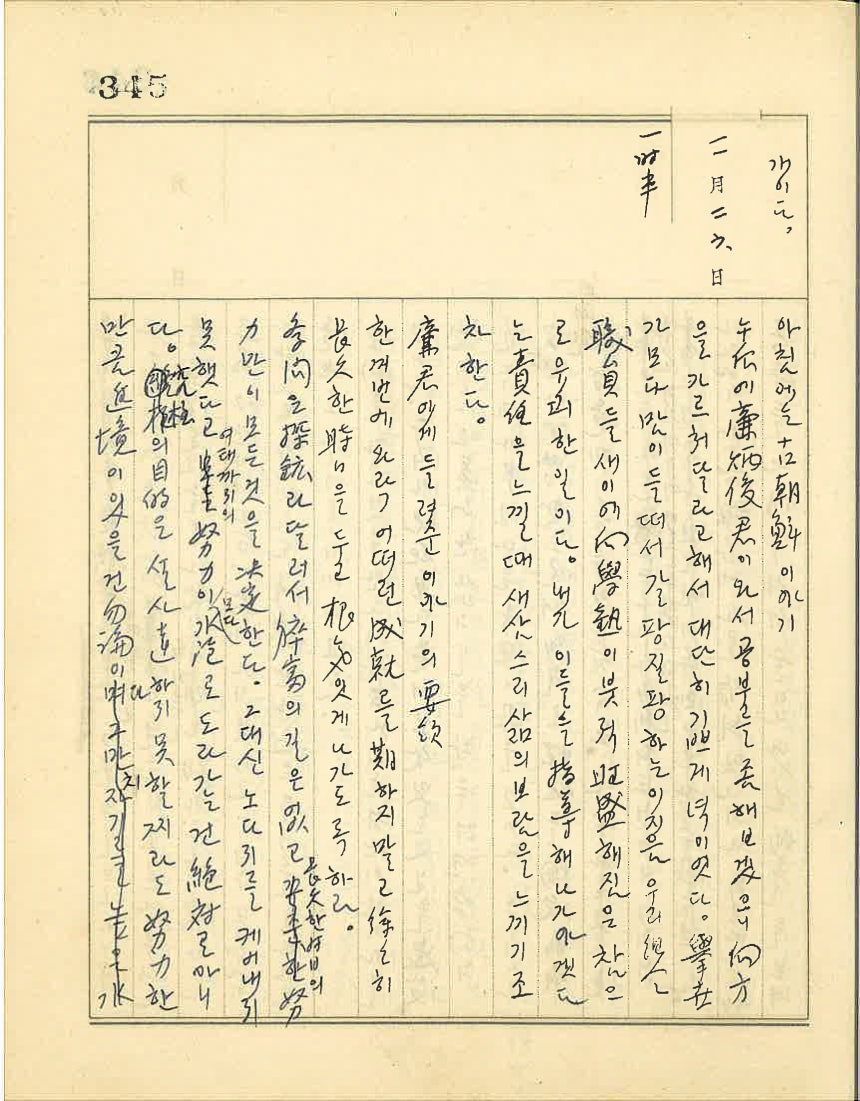 345
개이다。
二月二六日
一時半
아침에는 古朝鮮 이야기
午后에 廉炳俊君이 와서 공부를 좀 해보겠으니 向方
을 가르처달라고 해서 대단히 기쁘게 녁이엿다。擧世
가 모다 맘이 들떠서 갈팡질팡하는 이지음 우리
職員들 새이에 向學熱이 붓적 旺盛해짐은 참으
로 유쾌한 일이다。내가 이들을 指導해 나가야겟다
는 責任을 느낄 때 새삼스리 삶의 보람을 느끼기조
차 한다。
廉君에게 들려준 이야기의 要領
한꺼번에 와락 어떠런 成就를 期하지 말고 徐徐히
長久한 時日을 두고 根氣잇게 나가도록 하라。
學問은 採鑛과 달러서 猝富의 길은 없고 長久한 時日의 努
力만이 모든 것을 決定한다。그대신 노다지를 케어내지
못햇다고 여태까지의 努力이 모다 水泡로 도라가는 건 絶對로 아니
다。究極의 目的은 설사 達하지 못할찌라도 努力한
만큼 進境이 있을 건 勿論이다